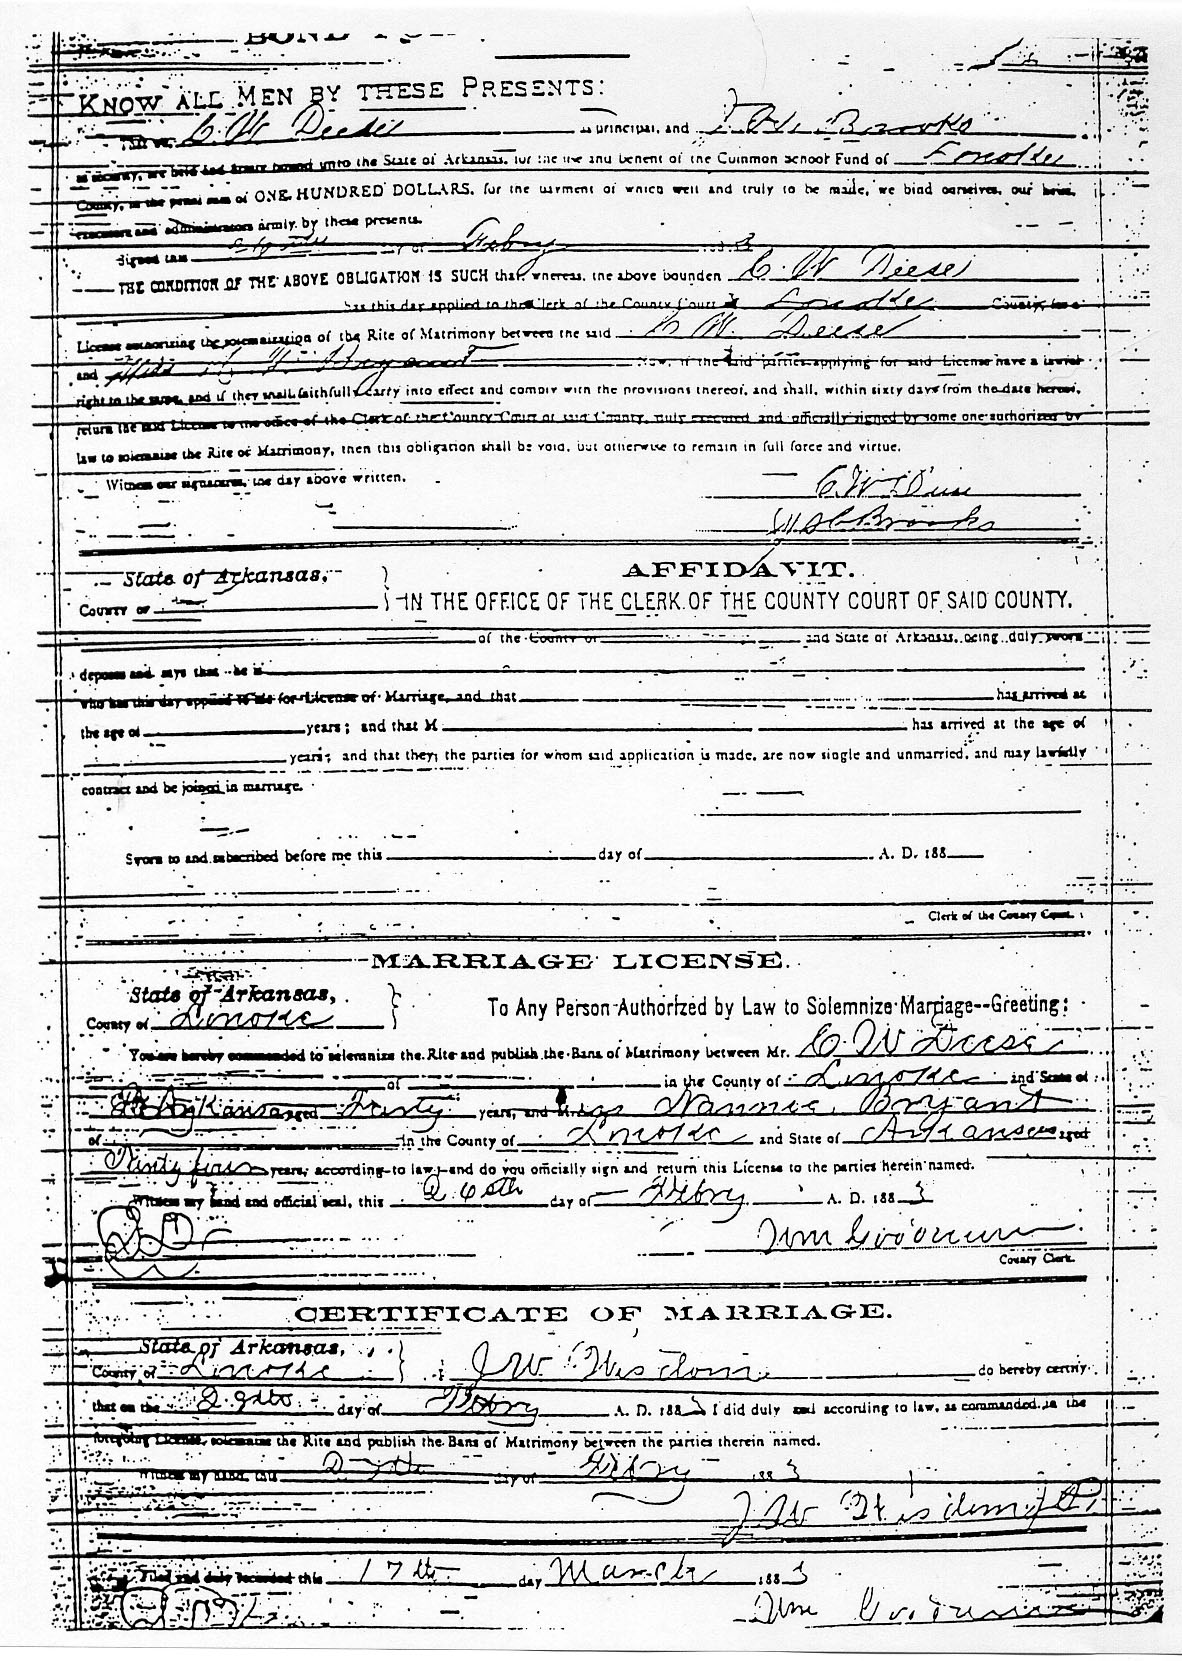 KNOW ALL MEN BY THESE PRESENTS:
C. W. Deese as principal, and Brooks
as security, are held and firmly bound unto the State of Arkansas, for the use and benefit of the Common School Fund of Lonoke
County, in the penal sum of ONE HUNDRED DOLLARS, for the payment of which well and truly to be made, we bind ourselves, our heirs,
executors and administrators firmly by these presents.
Signed this day of Febry 188 3
THE CONDITION OF THE ABOVE OBLIGATION IS SUCH that whereas, the above bounden C. W Deese
has this day applied to the Clerk of the County Court of Lonoke County, for a
License authorizing the solemnization of the Rite of Matrimony between the said C W. Deese
and Miss Bryant Now, if the said parties applying for said License have a lawful
right to the same, and if they shall faithfully carry into effect and comply with the provisions thereof, and shall, within sixty days from the date hereof,
return the said License to the office of the Clerk of the County Court of said County, duly executed and officially signed by some one authorized by
law to solemnize the Rite of Matrimony, then this obligation shall be void, but otherwise to remain in full force and virtue.
Witness our signatures, the day above written.
C. W.
Brooks
State of Arkansas,
AFFIDAVIT.
COUNTY OF
IN THE OFFICE OF THE CLERK OF THE COUNTY COURT OF SAID COUNTY.
of the County of and State of Arkansas, being duly sworn
deposes and says that he is
who has this day applied to me for License of Marriage, and that has arrived at
the age of years; and that M has arrived at the age of
years; and that they, the parties for whom said application is made, are now single and unmarried, and may lawfully
contract and be joined in marriage.
Sworn to and subscribed before me this day of A. D. 188
Clerk of the County Court.
MARRIAGE LICENSE.
State of Arkansas,
County of Lonoke
To Any Person Authorized by Law to Solemnize Marriage--Greeting:
You are hereby commanded to solemnize the Rite and publish the Bans of Matrimony between Mr. C. W Deese
of in the County of Lonoke and State of
Arkansas aged years, and Miss Nannie Bryant
of in the County of Lonoke and State of Arkansas aged
years, according to law, and do you officially sign and return this License to the parties herein named.
Witness my hand and official seal, this 26th day of Febry A. D. 188 3
Wm Goodrum
County Clerk.
CERTIFICATE OF MARRIAGE.
State of Arkansas,
County of Lonoke J W Wisdom do hereby certify
that on the day of Febry A. D. 188 3 I did duly and according to law, as commanded in the
foregoing License, solemnize the Rite and publish the Bans of Matrimony between the parties therein named.
Witness my hand, this day of Febry 188 3
J W Wisdom J.P.
Filed and duly recorded this 17th day March 188 3
Wm Goodrum